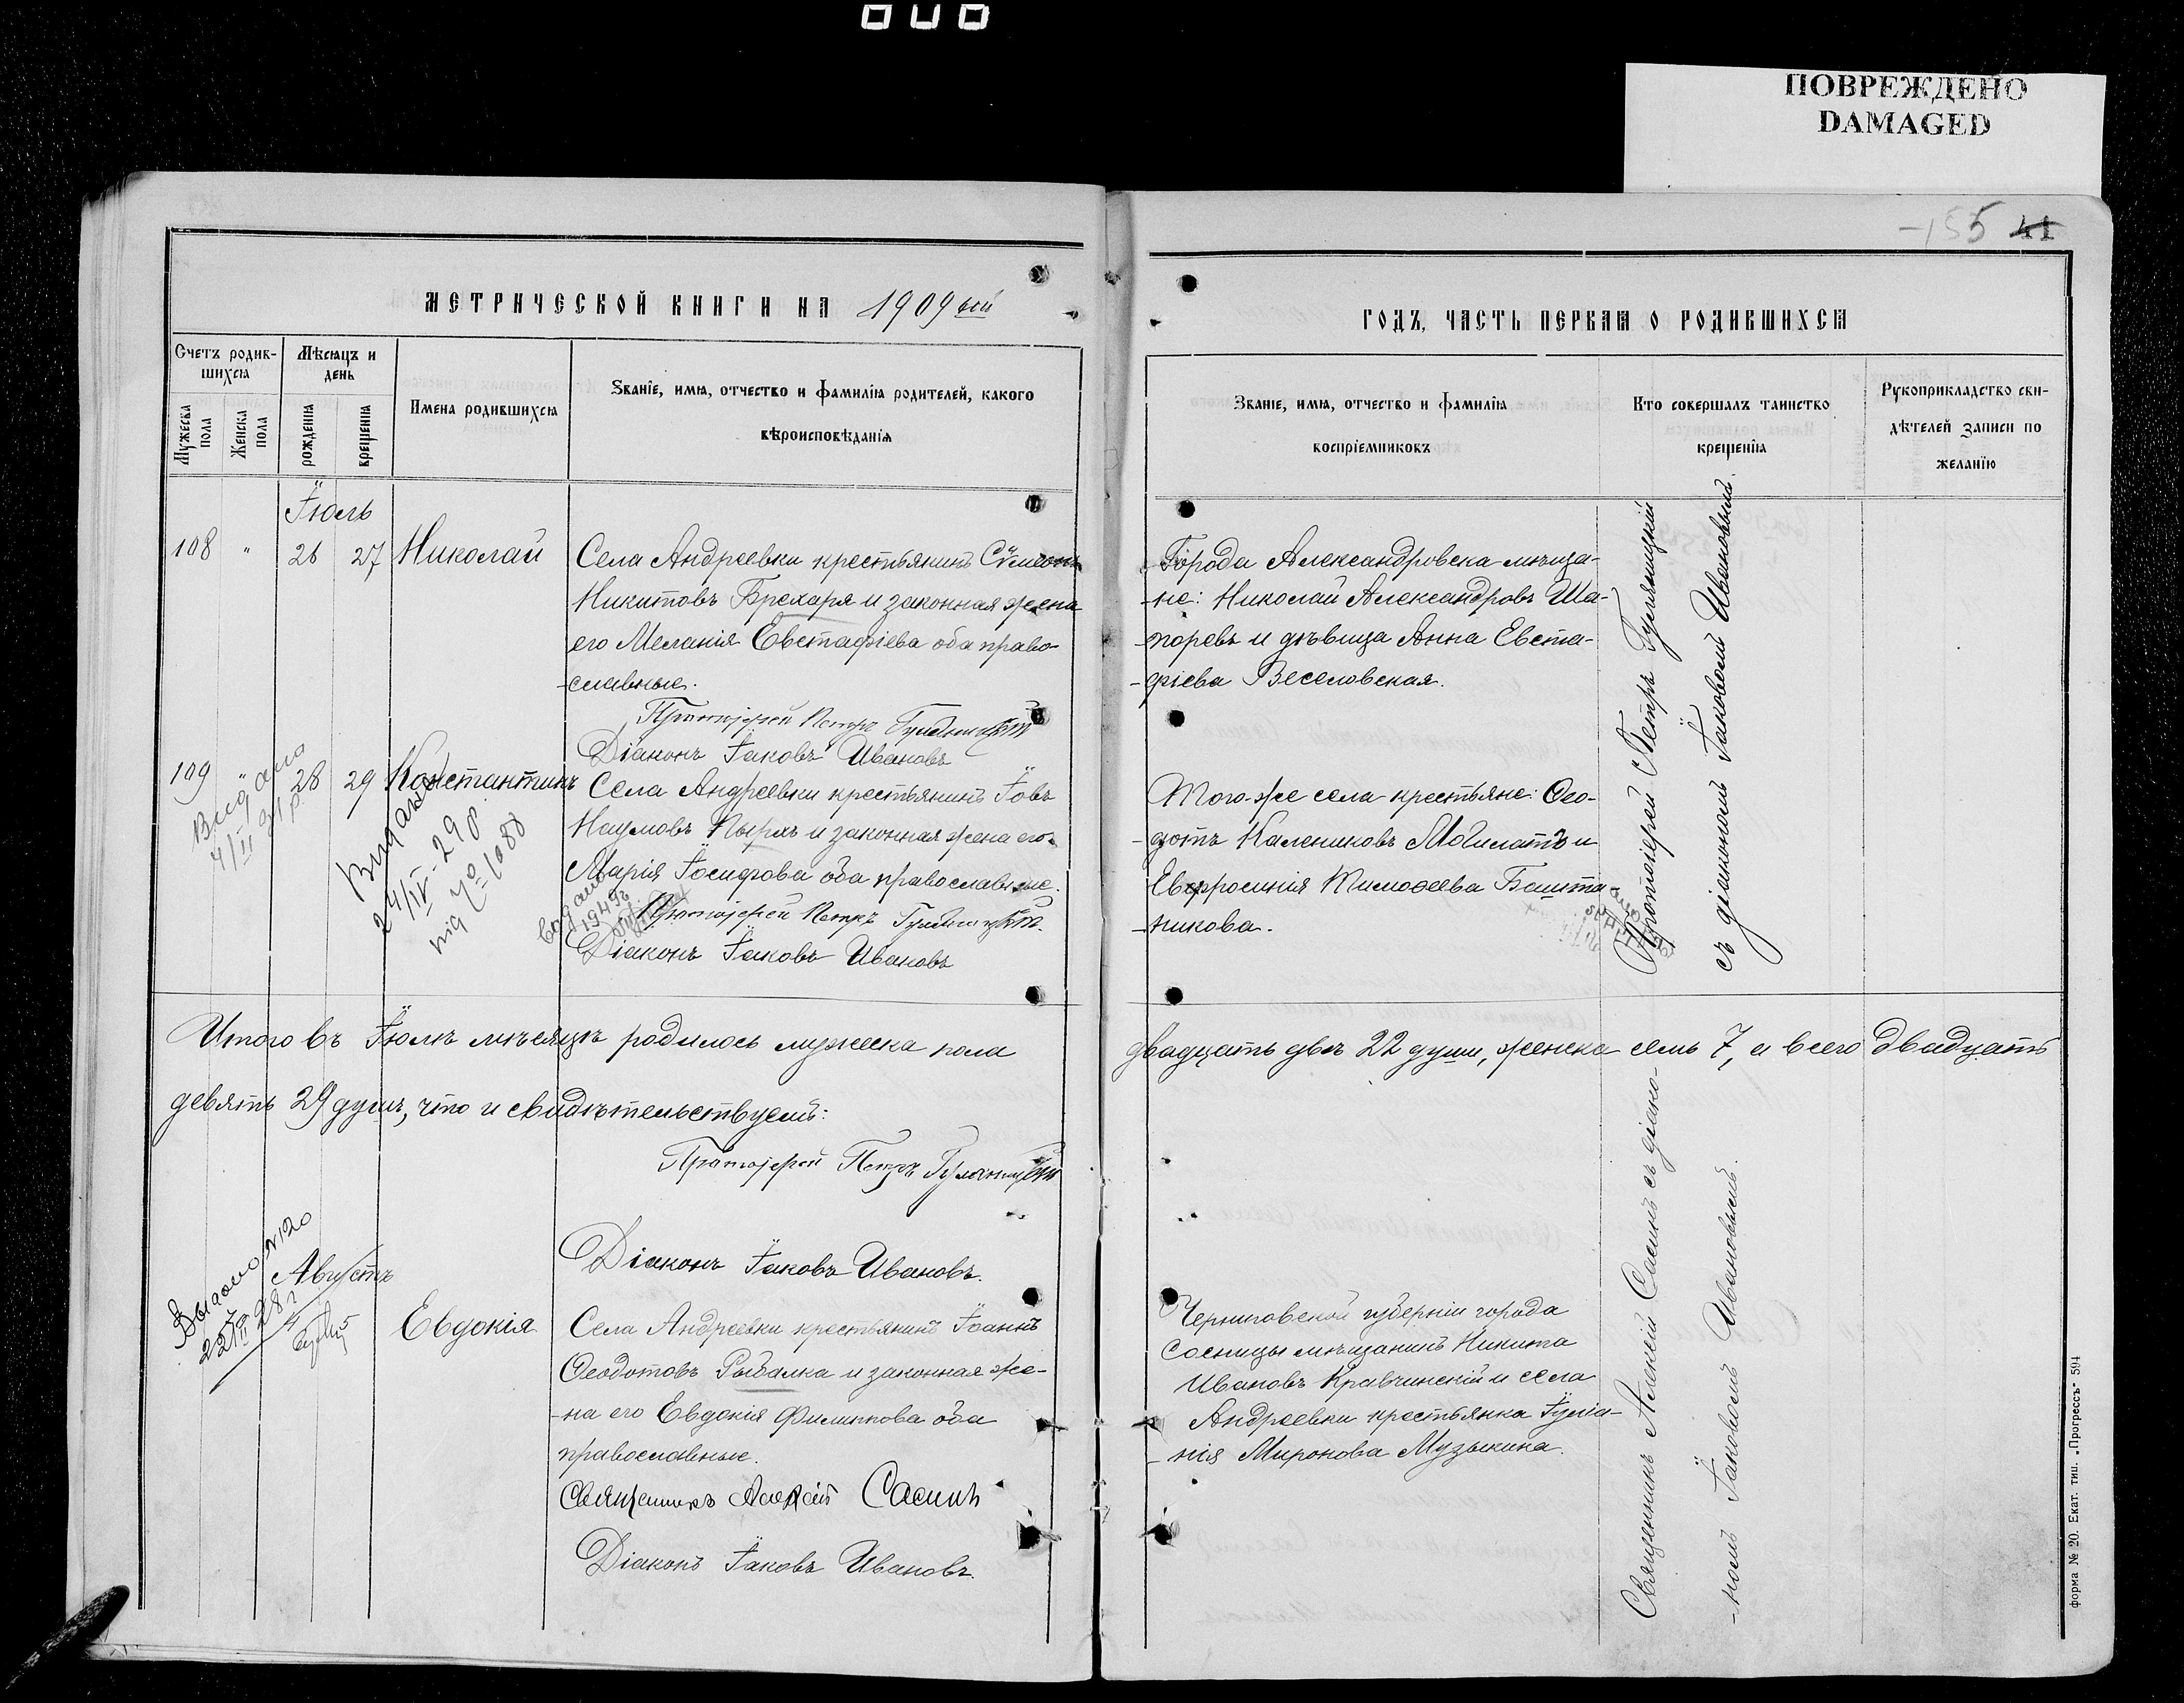 ПОВРЕЖДЕНО
DAMAGED
155 41
МЕТРИЧЕСКОЙ КНИГИ НА 1909 ый
Счетъ родив-
шихся
Мѣсяцъ и
день
Мужеска
пола
Женска
пола
рожденія
крещенія
Имена родившихся
Званіе, имя, отчество и фамилія родителей, какого
вѣроисповѣданія
Іюль
108 " 26 27 Николай
Села Андреевки крестьянинъ Сѵмеонъ
Никитовъ Брехаря и законная жена
его Меланія Евстафіева оба право-
-славные.
Протоіерей Петръ
Діаконъ Іаковъ Ивановъ
109 " 28 29 Константинъ
Села Андреевки крестьянинъ Іовъ
Наумовъ Пырхъ и законная жена его
Марія Іосифова оба православные.
Протоіерей Петръ
Діаконъ Іаковъ Ивановъ
Видано
4/II 31 р.
Видано
24/IV-29 р
від № 1088
Итого въ Іюлѣ мѣсяцѣ родилось мужеска пола
девять 29 душъ, что и свидѣтельствуемъ:
Протоіерей Петръ
Діаконъ Іаковъ Ивановъ.
Выдано № 120
Августъ
Евдокія
Села Андреевки крестьянинъ Іоаннъ
Ѳеодотовъ Рыбалка и законная же-
-на его Евдокія Филиппова оба
православные.
Священникъ Алексій Саенкъ
Діаконъ Іаковъ Ивановъ.
ГОДЪ, ЧАСТЬ ПЕРВАЯ О РОДИВШИХСЯ
Званіе, имя, отчество и фамилія
воспріемниковъ
Кто совершалъ таинство
крещенія
Рукоприкладство сви-
дѣтелей записи по
желанію
Города Александровска мѣща-
-не: Николай Александровъ Ша-
-поревъ и дѣвица Анна Евста-
-фіева Веселовская.
Того-же села крестьяне: Ѳео-
-дотъ Калениковъ Могилатъ и
Евфросинія Тимоѳеева Башта-
-никова.
Протоіерей Петръ
съ діакономъ Іаковомъ Ивановымъ
двадцать двѣ 22 души, женска семь 7, а всего двадцать
Черниговской губерніи города
Сосницы мѣщанинъ Никита
Ивановъ Кравчинскій и села
Андреевки крестьянка Іуліа-
-нія Миронова Музыкина.
Священникъ Алексій Саенкъ съ діако-
-номъ Іаковомъ Ивановымъ.
форма № 20. Екат. тип. „Прогрессъ" 594